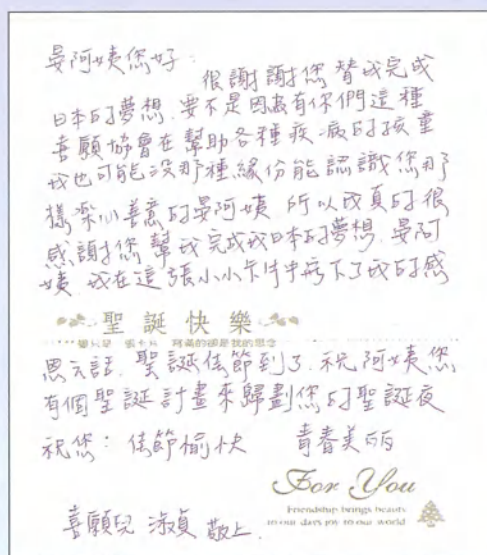 晏阿姨您好:
很謝謝您替我完成
日本的夢想.要不是因為有你們這種
喜願協會在幫助各種疾病的孩童
我也可能沒那種緣份能認識您那
樣 善意的晏阿姨 所以我真的很
感謝您幫我完成我日本的夢想.晏阿
姨.我在這張小小卡片中寫下了我的感
聖誕快樂
恩之話.聖誕佳節到了.祝阿姨您
有個聖誕計畫來歸劃您的聖誕夜
祝您:佳節愉快 青春美丽
For You
Friendship brings beauty
to our days joy to our world
喜願兒 淑貞 敬上.